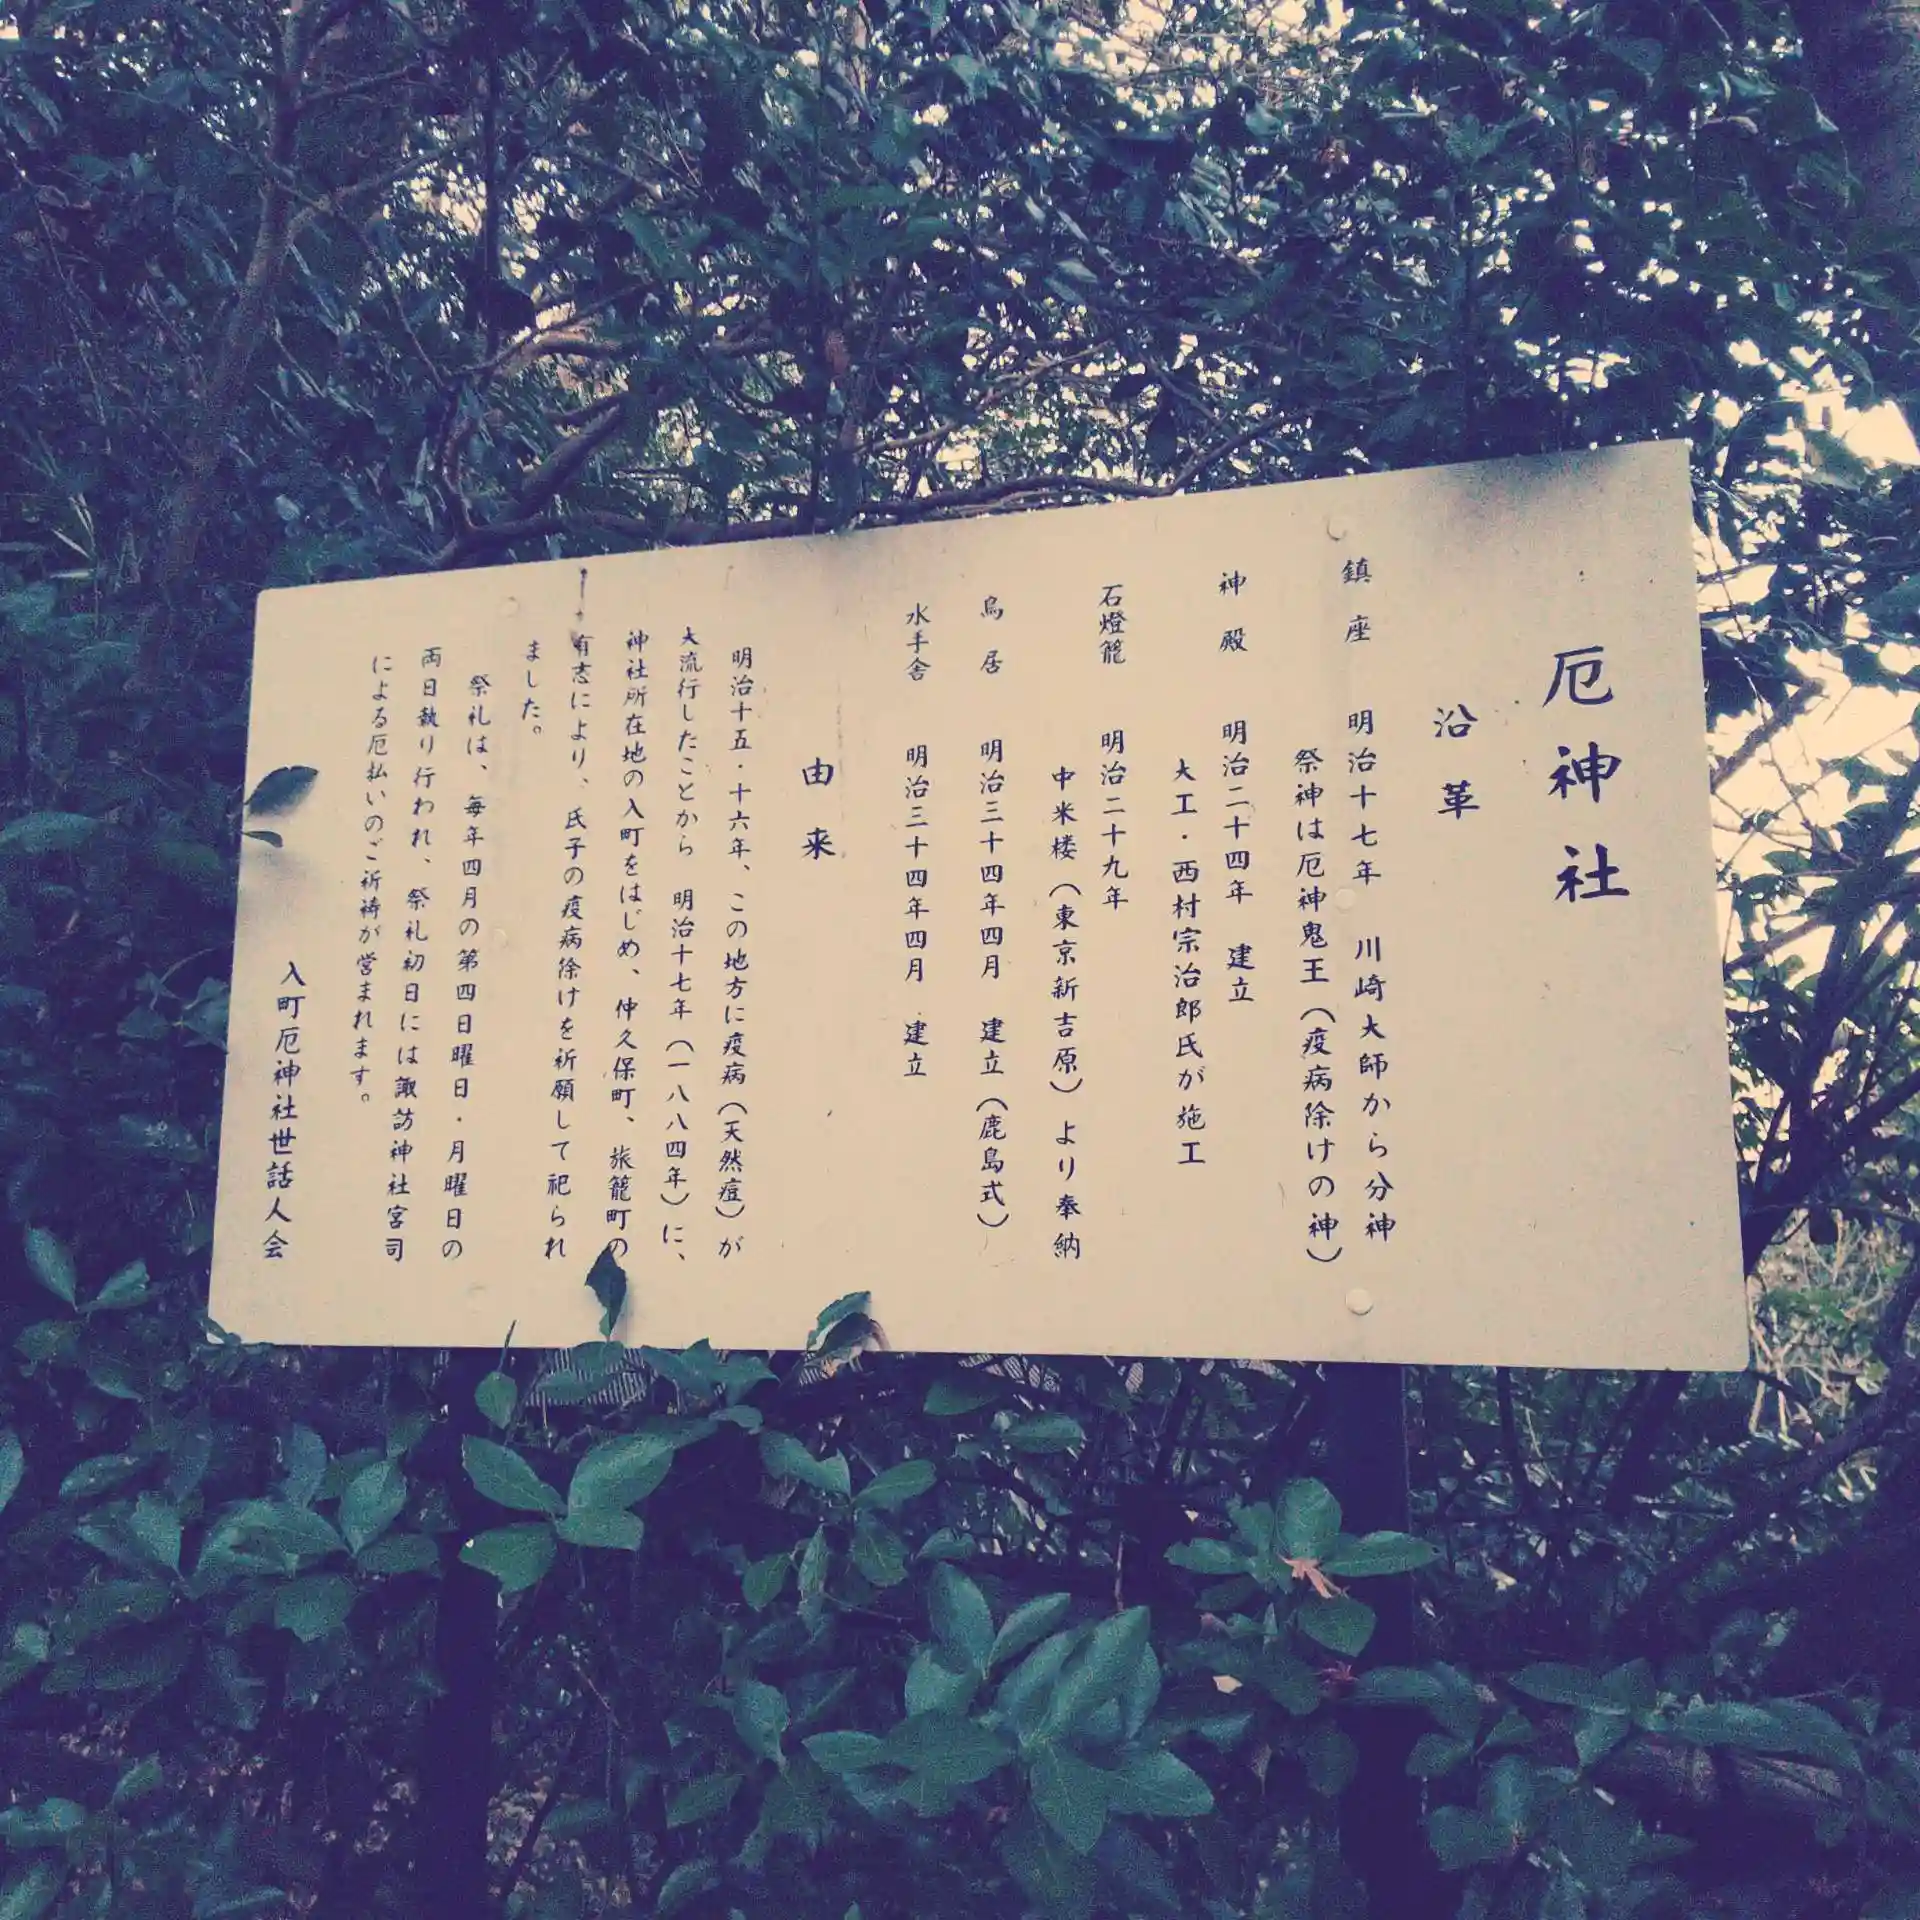 厄神社
沿革
鎮座 明治十七年 川崎大師から分神
祭神は厄神鬼王（疫病除けの神）
神殿 明治二十四年 建立
大工・西村宗治郎氏が施工
石燈籠 明治二十九年
中米楼（東京新吉原）より奉納
鳥居 明治三十四年四月 建立（鹿島式）
水手舎 明治三十四年四月 建立
由来
明治十五・十六年、この地方に疫病（天然痘）が
大流行したことから 明治十七年（一八八四年）に、
神社所在地の入町をはじめ、仲久保町、旅籠町の
有志により、氏子の疫病除けを祈願して祀られ
ました。
祭礼は、毎年四月の第四日曜日・月曜日の
両日執り行われ、祭礼初日には諏訪神社宮司
による厄払いのご祈祷が営まれます。
入町厄神社世話人会